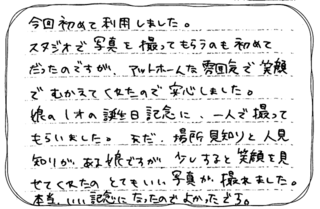 今回初めて利用しました。
スタジオで写真を撮ってもらうのも初めて
だったのですが、アットホームな雰囲気で笑顔
でむかえてくれたので安心しました。
娘の1才の誕生日記念に、一人で撮って
もらいました。まだ、場所見知りと人見
知りがある娘ですが、少しすると笑顔を見
せてくれたの とてもいい写真が撮れました。
本当、いい記念になったのでよかったです。